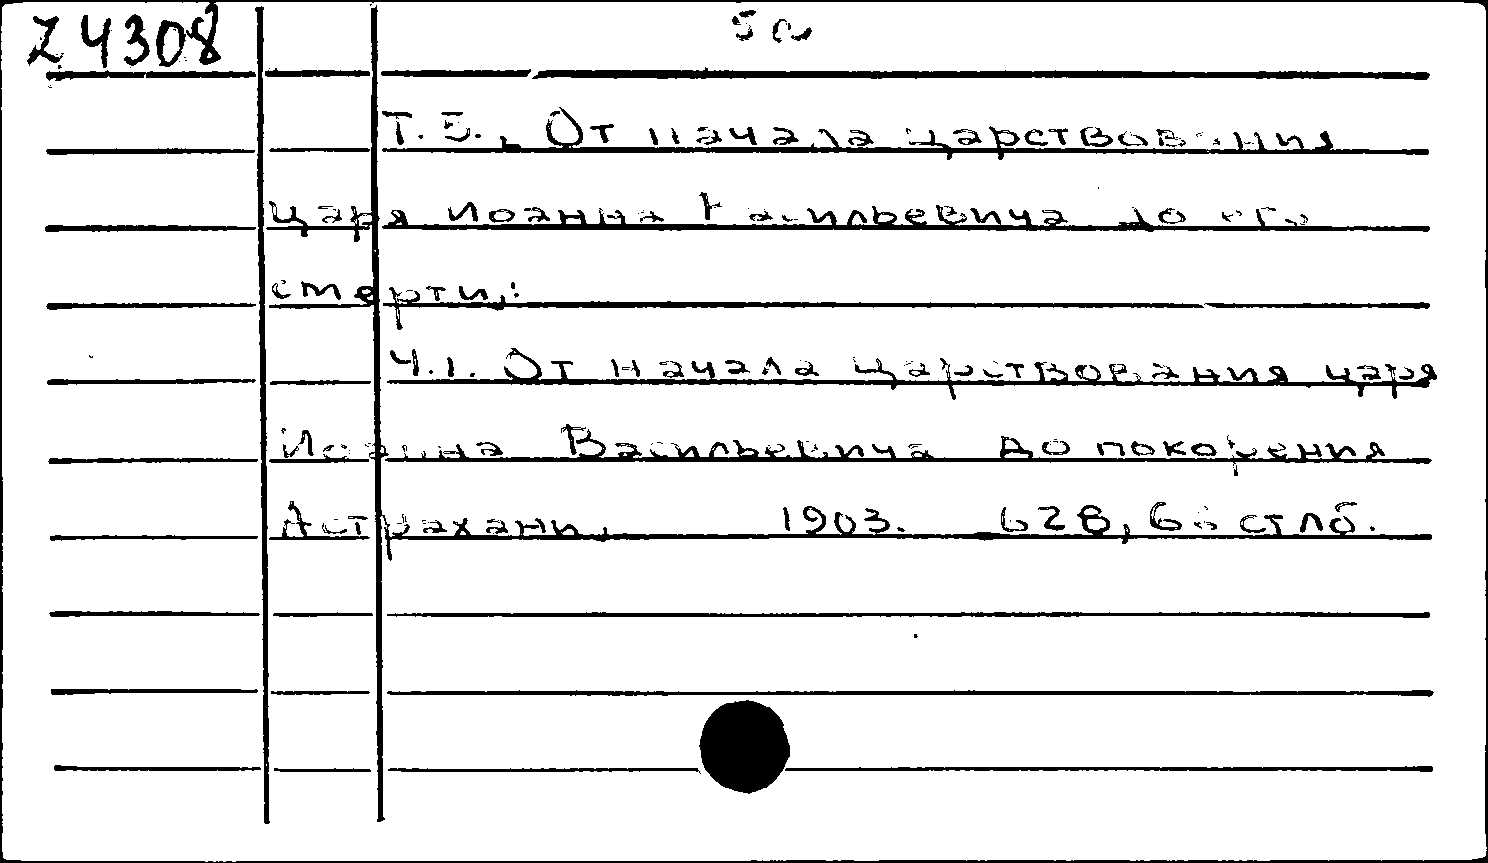 Z 4308
5a
Т. 5., От начала царствования
царя Иоанна Васильевича до его
смерти,:
Ч.1. От начала царствования царя
Иоанна Васильевича до покорения
Астрахани, 1903. 628, 66 стлб.